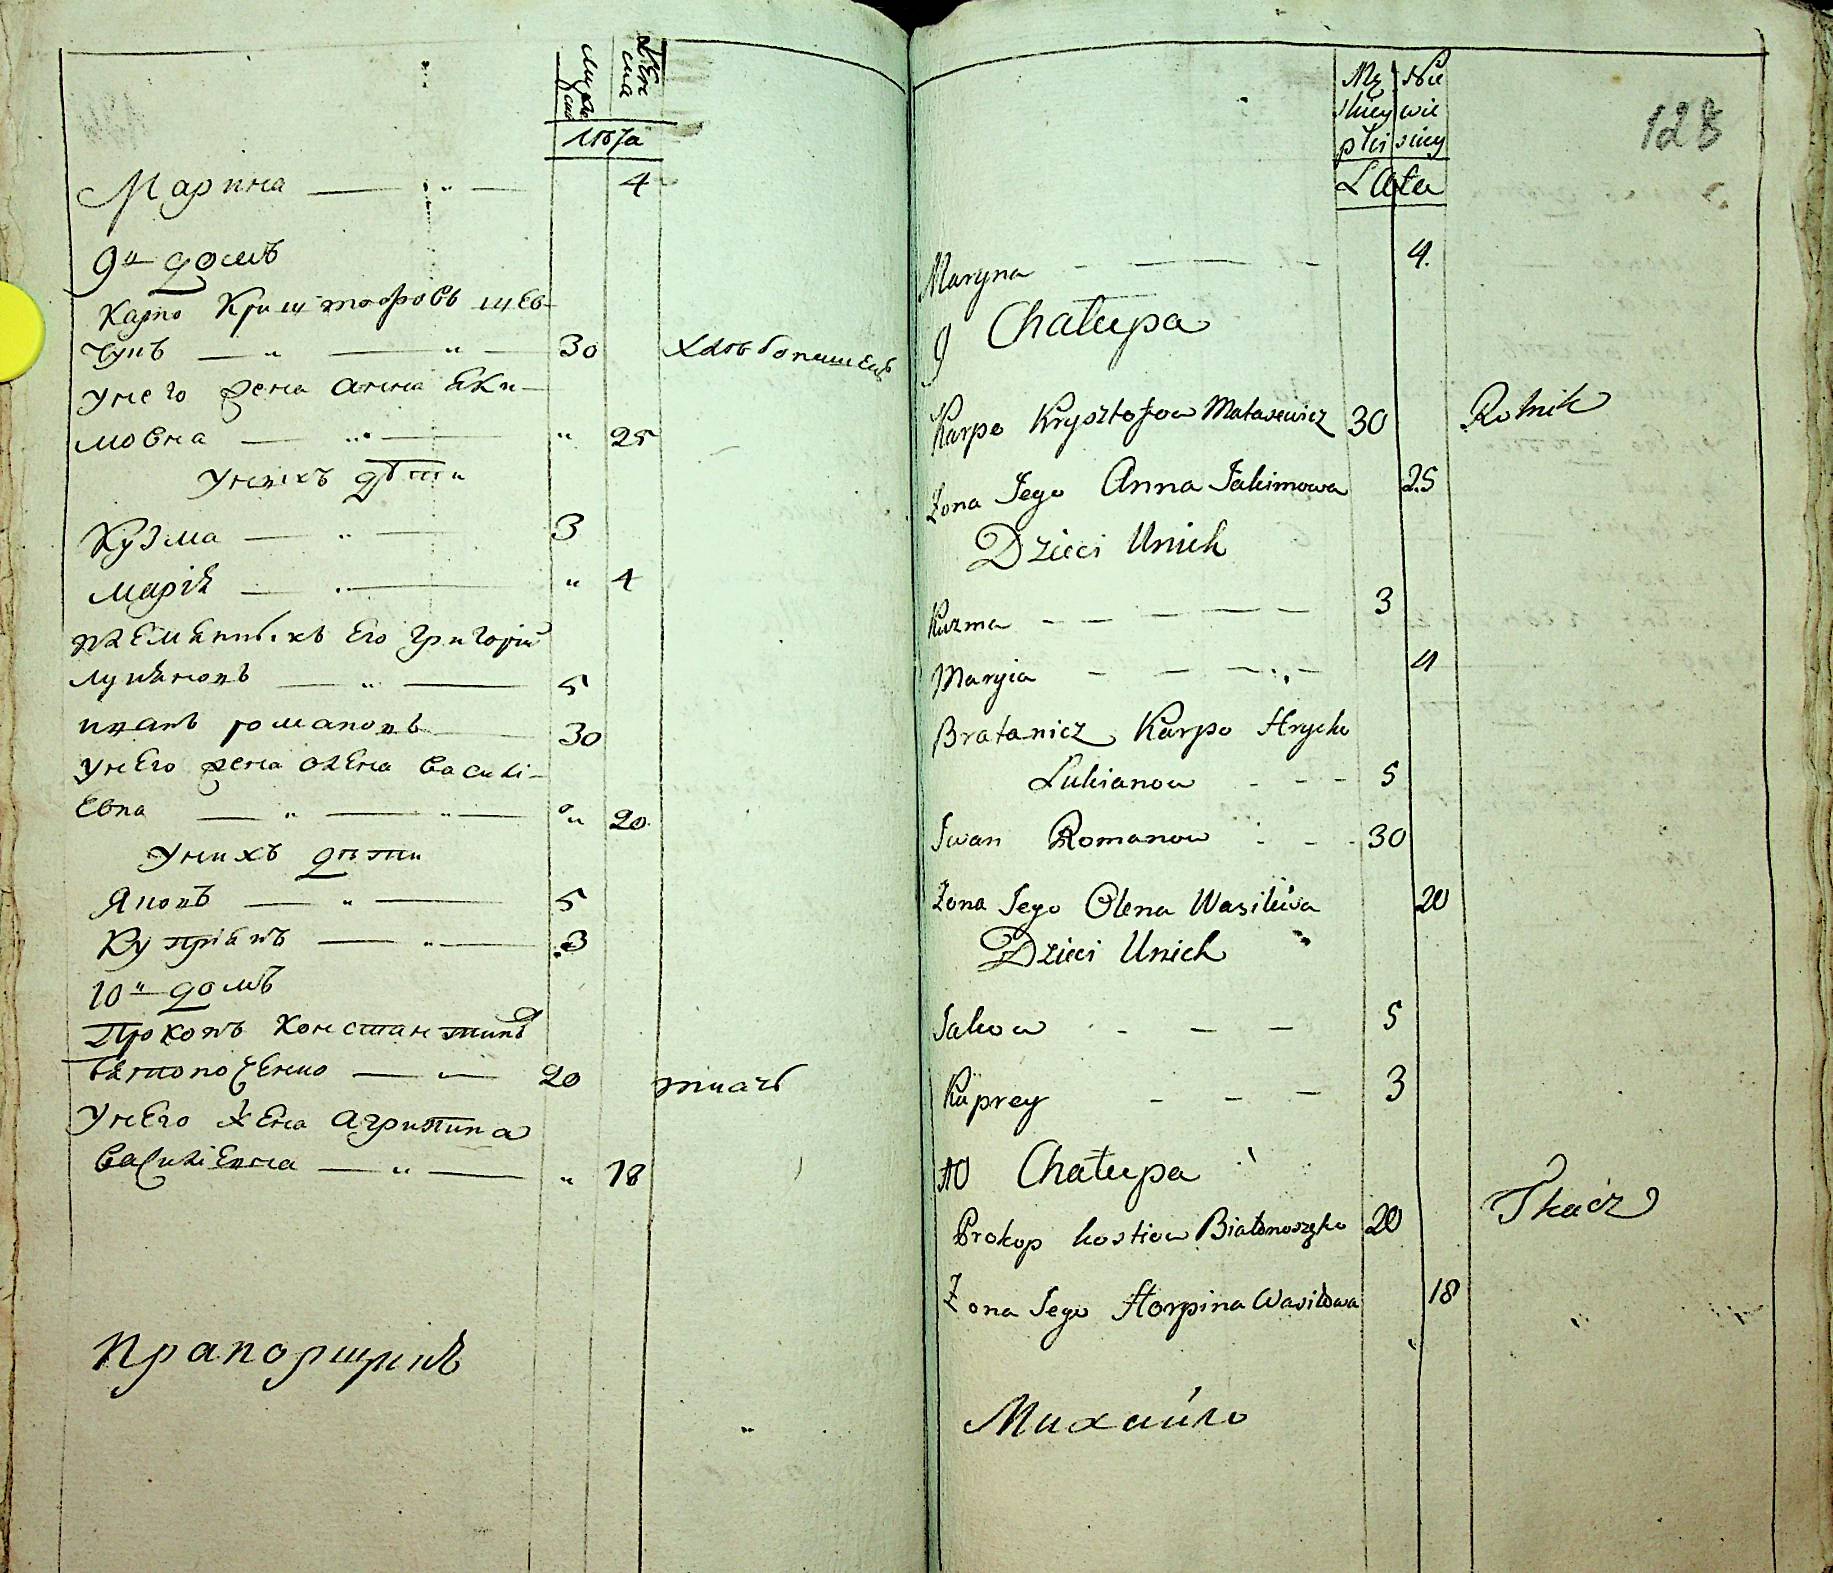 мужеска
женска
лѣта
Марина — " — 4
9й домъ
Карпо Криштофовъ шев-
чукъ — " — " — 30 хлѣбопашецъ
унего жена анна Яки-
мовна — " — " 25
Унихъ дѣти
Кузма — " — 3
Марія — " — " 4
племянникъ Его григорій
лукяновъ — " — 5
иванъ романовъ — 30
унЕго жена олЕна васили-
Евна — " — " — " 20
Унихъ дѣти
Яковъ — " — 5
Купріянъ — " — 3
10й домъ
Прокопъ Константиновъ
20 ткачъ
УнЕго жЕна агрипина
василіевна — " — " 18
Прапорщикъ
128
Mę Nie
skiey wie
płci sciey
Lata
Maryna - — — - 4.
9 Chałupa
Karpo Krysztofow Matasewicz 30 Rolnik
Żona Jego Anna Jakimowa 25
Dzieci Unich
Kuzma - — — — 3
Maryia — — — — 4
Bratanicz Karpo Hrycko
Lukianow - - - 5
Iwan Romanow - - - 30
Żona Jego Olena Wasilewa 20
Dzieci Unich
Jakow - - — — 5
Kuprey - - — 3
10 Chałupa
Prokop kostiow Białonoszko 20 Tkacz
Żona Jego Horpina Wasilowa 18
Михайло